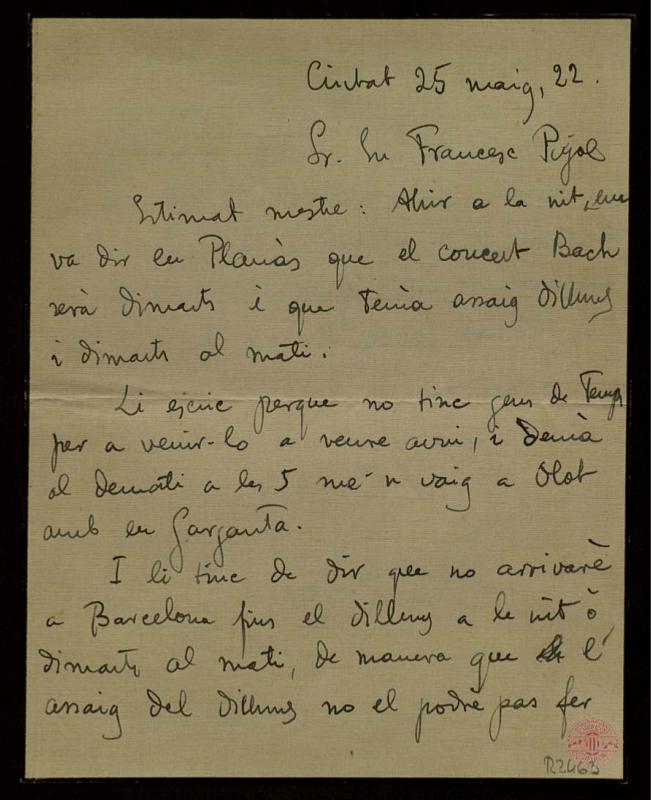 Ciutat 25 maig, 22.
Sr. En Francesc Pujol
Estimat mestre: Ahir a la nit, em
va dir en Planàs que el concert Bach
serà dimarts i que tenia assaig dilluns
i dimarts al mati.
Li escric perque no tinc gens de temps
per a venir-lo a veure avui, i demà
al dematí a les 5 me'n vaig a Olot
amb en Garganta.
I li tinc de dir que no arrivarè
a Barcelona fins el dilluns a la nit ò
dimarts al mati, de manera que l'
assaig del dilluns no el podrè pas fer
R2463